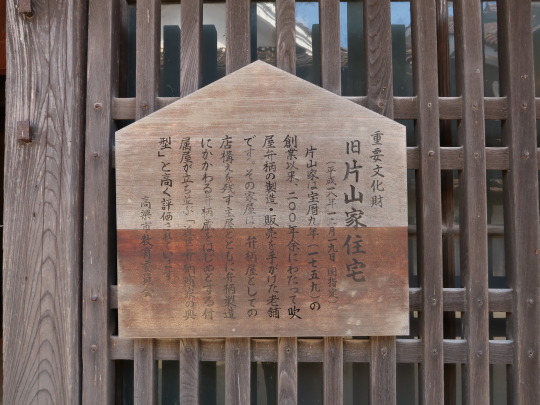 重要文化財
旧片山家住宅
(平成一八年一二月一九日 国指定)
片山家は宝暦九年(一七五九)の
創業以来、二〇〇年余にわたって吹
屋弁柄の製造・販売を手がけた老舗
です。その家屋は、弁柄屋としての
店構えを残す主屋とともに弁柄製造
にかかわる付
属屋が立ち並ぶ「
型」と高く評価されています。
高梁市教育委員会